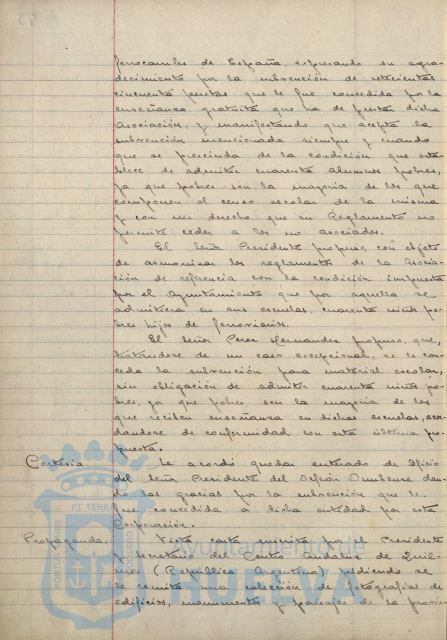 ferrocarriles de España, expresando su agra-
decimiento por la subvención de setecientas
cincuenta pesetas que le fue concedida por la
enseñanza gratuita que ha de prestar dicha
Asociación, y manifestando que acepta la
subvención mencionada siempre y cuando
que se prescinda de la condición que esta
blece de admitir cuarenta alumnos pobres,
ya que pobres son la mayoria de los que
componen el censo escolar de la misma
y con un derecho que su Reglamento no
permite ceder a los no asociados.
El Señor Presidente propuso, con objeto
de armonizar los reglamentos de la Asocia-
ción de referencia con la condición impuesta
por el Ayuntamiento que por aquella se
admitiera en sus escuelas, cuarenta niños po-
bres hijos de ferroviarios.
El Señor Perez Hernandez propuso, que,
tratandose de un caso excepcional, se le con-
ceda la subvención para material escolar,
sin obligación de admitir cuarenta niños po-
bres, ya que pobres son la mayoria de los
que reciben enseñanza en dichas escuelas, acor-
dandose de conformidad con esta última pro-
puesta.
Cortesia Se acordó quedar enterado de Oficio
del Señor Presidente del Orfeón Onubense dan-
do las gracias por la subvención que le
fue concedida á dicha entidad por esta
Corporación.
Propaganda. Vista carta suscrita por el Presidente
y Secretario del Centro Andaluz de Quil-
mes (República Argentina) pidiendo se
le remita una colección de fotografias de
edificios, monumentos y paisajes de la provin-
Ayuntamiento de
HUELVA
PORTUS MARIS
ET TERRAE
CUSTODIA